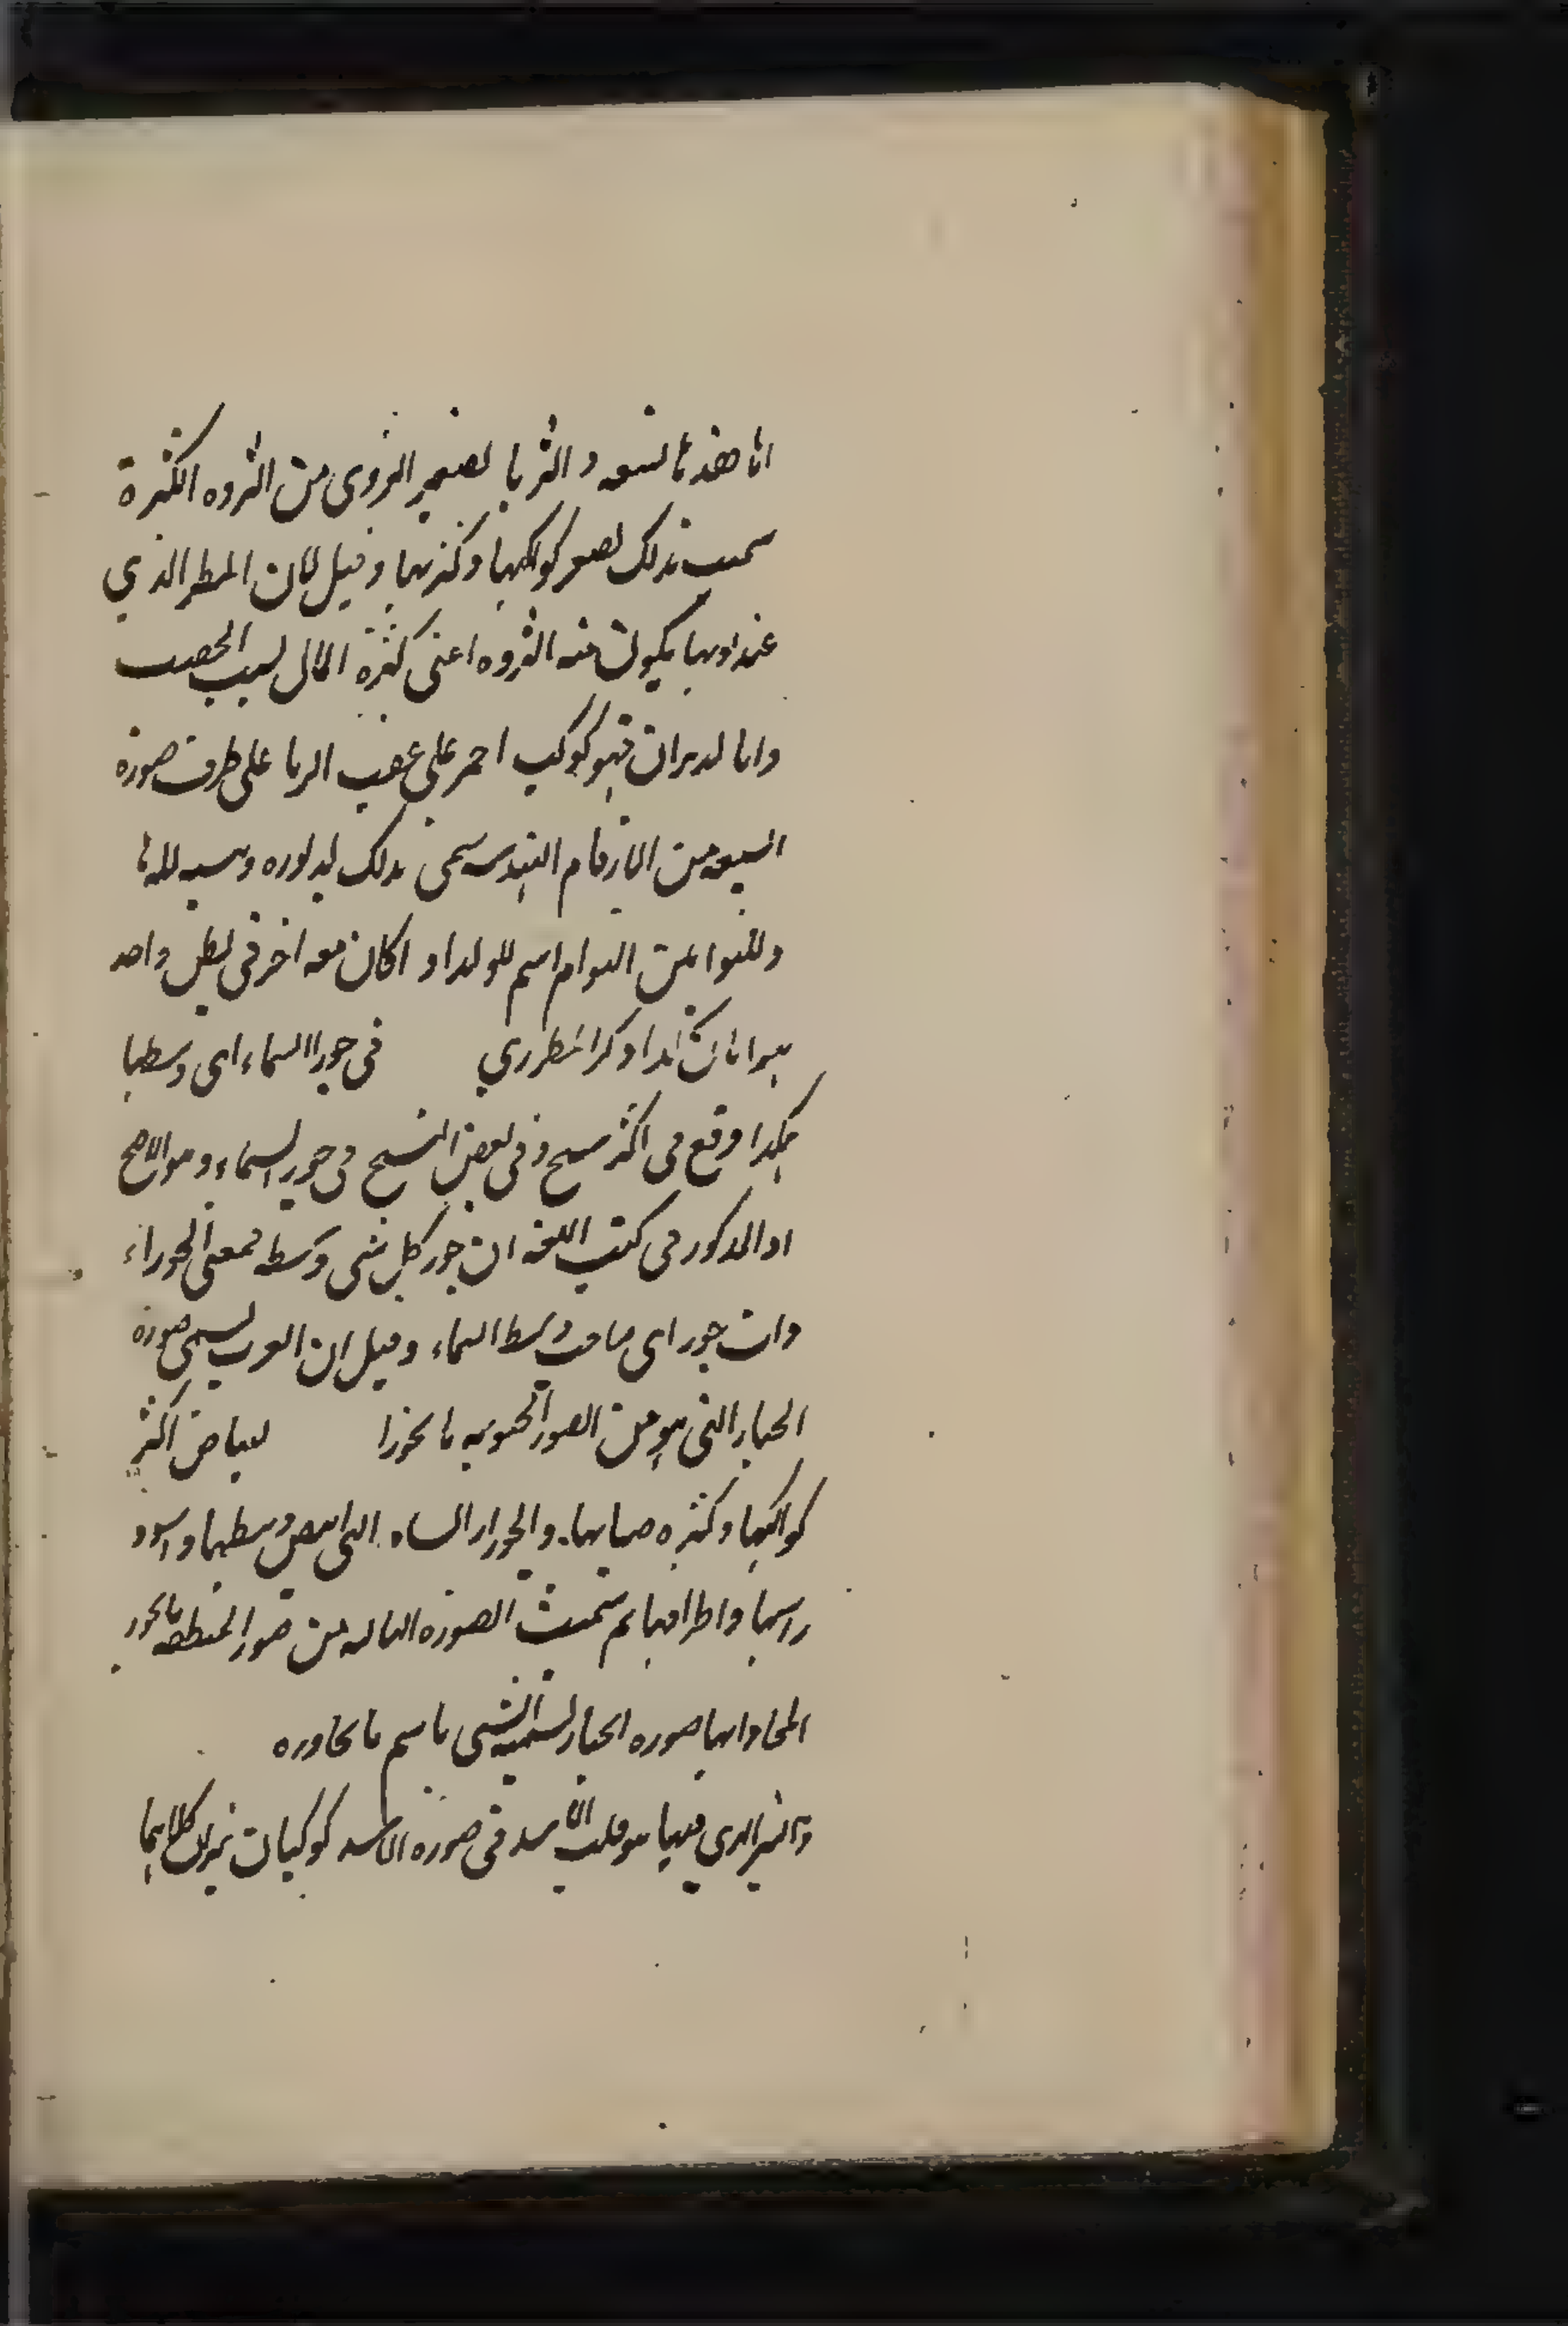 اما هذه بالتسعه و الثريا تصغير الثروى من الثروه الكثرة
سميت بذلك لصغر كواكبها وكثرتها وقيل لان المطر الذي
عند نوئها يكون منه الثروه اعنى كثرة المال لسبب الخصب
واما الدبران فهو كوكب احمر على عقب الثريا على طرف صورة
السبعه من الارقام الهنديه سمى بذلك لدبوره
والتوامين التوام اسم للولد اذا كان معه اخر فى بطن واحد
هما توامان هكذا ذكر المطرزي فى جوزا السماء اى وسطها
هكذا وقع فى اكثر نسخ وفى بعض النسخ فى جوز السماء وهو الاصح
اذ المذكور فى كتب اللغه ان جوز كل شى وسطه فمعنى الجوزاء
ذات جوز اى صاحب وسط السماء وقيل ان العرب تسمى صورة
الجبار التى هو من الصور الجنوبيه بالجوزا لبياض اكثر
كواكبها وكثره ضيائها والجوزا الشاه التى ابيض وسطها واسود
راسها واطرافها ثم سميت الصوره الثالثه من صور المنطقه بالجوز
لمحاذاتها صوره الجبار تسميه الشى باسم ما يجاوره
والنير الذى فيها هو قلب الاسد فى صوره الاسد كوكبان نيران كلاهما